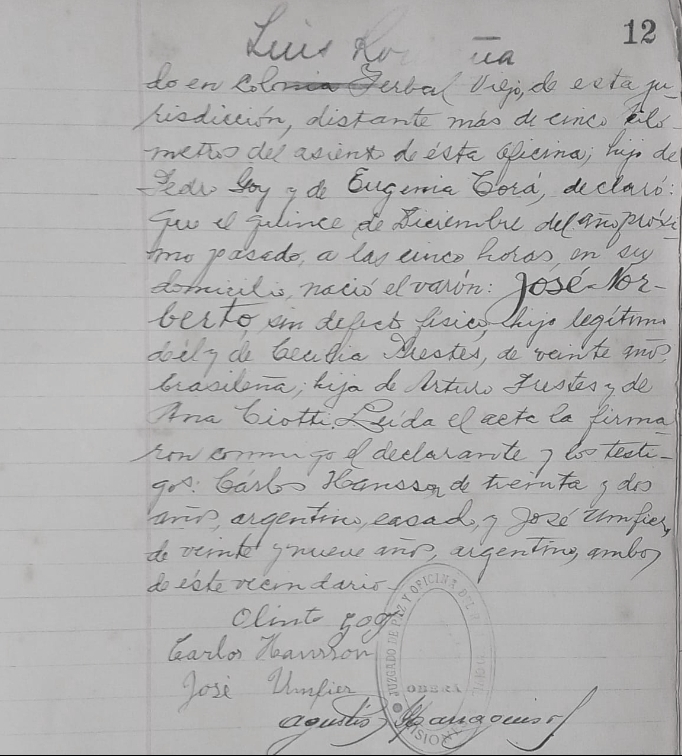 12
Luis
do en colonia Yerbal Viejo, de esta ju-
risdicción, distante más de cinco kiló-
metros del asiento de ésta Oficina; hijo de
Pedro Goy y de Eugenia Corá, declaró:
Que el quince de Diciembre del año próxi-
mo pasado, a las cinco horas, en su
domicilio, nació el varón: José Nor-
berto, sin defecto físico, hijo legítimo
dél y de Cecilia Prestes, de veinte años,
brasileña; hija de Arturo Prestes y de
Ana Ciotti. Leída el acta la firma-
ron conmigo el declarante y los testi-
gos: Cárlos Hansson, de treinta y dos
años, argentino, casado, y José Umfier,
de veinte y nueve años, argentino, ambos
de éste vecindario.-
Olinto Goy
Carlos Hansson
José Umfier
Agustín
JUZGADO DE PAZ Y OFICINA DEL
OBERÁ
MISIONES